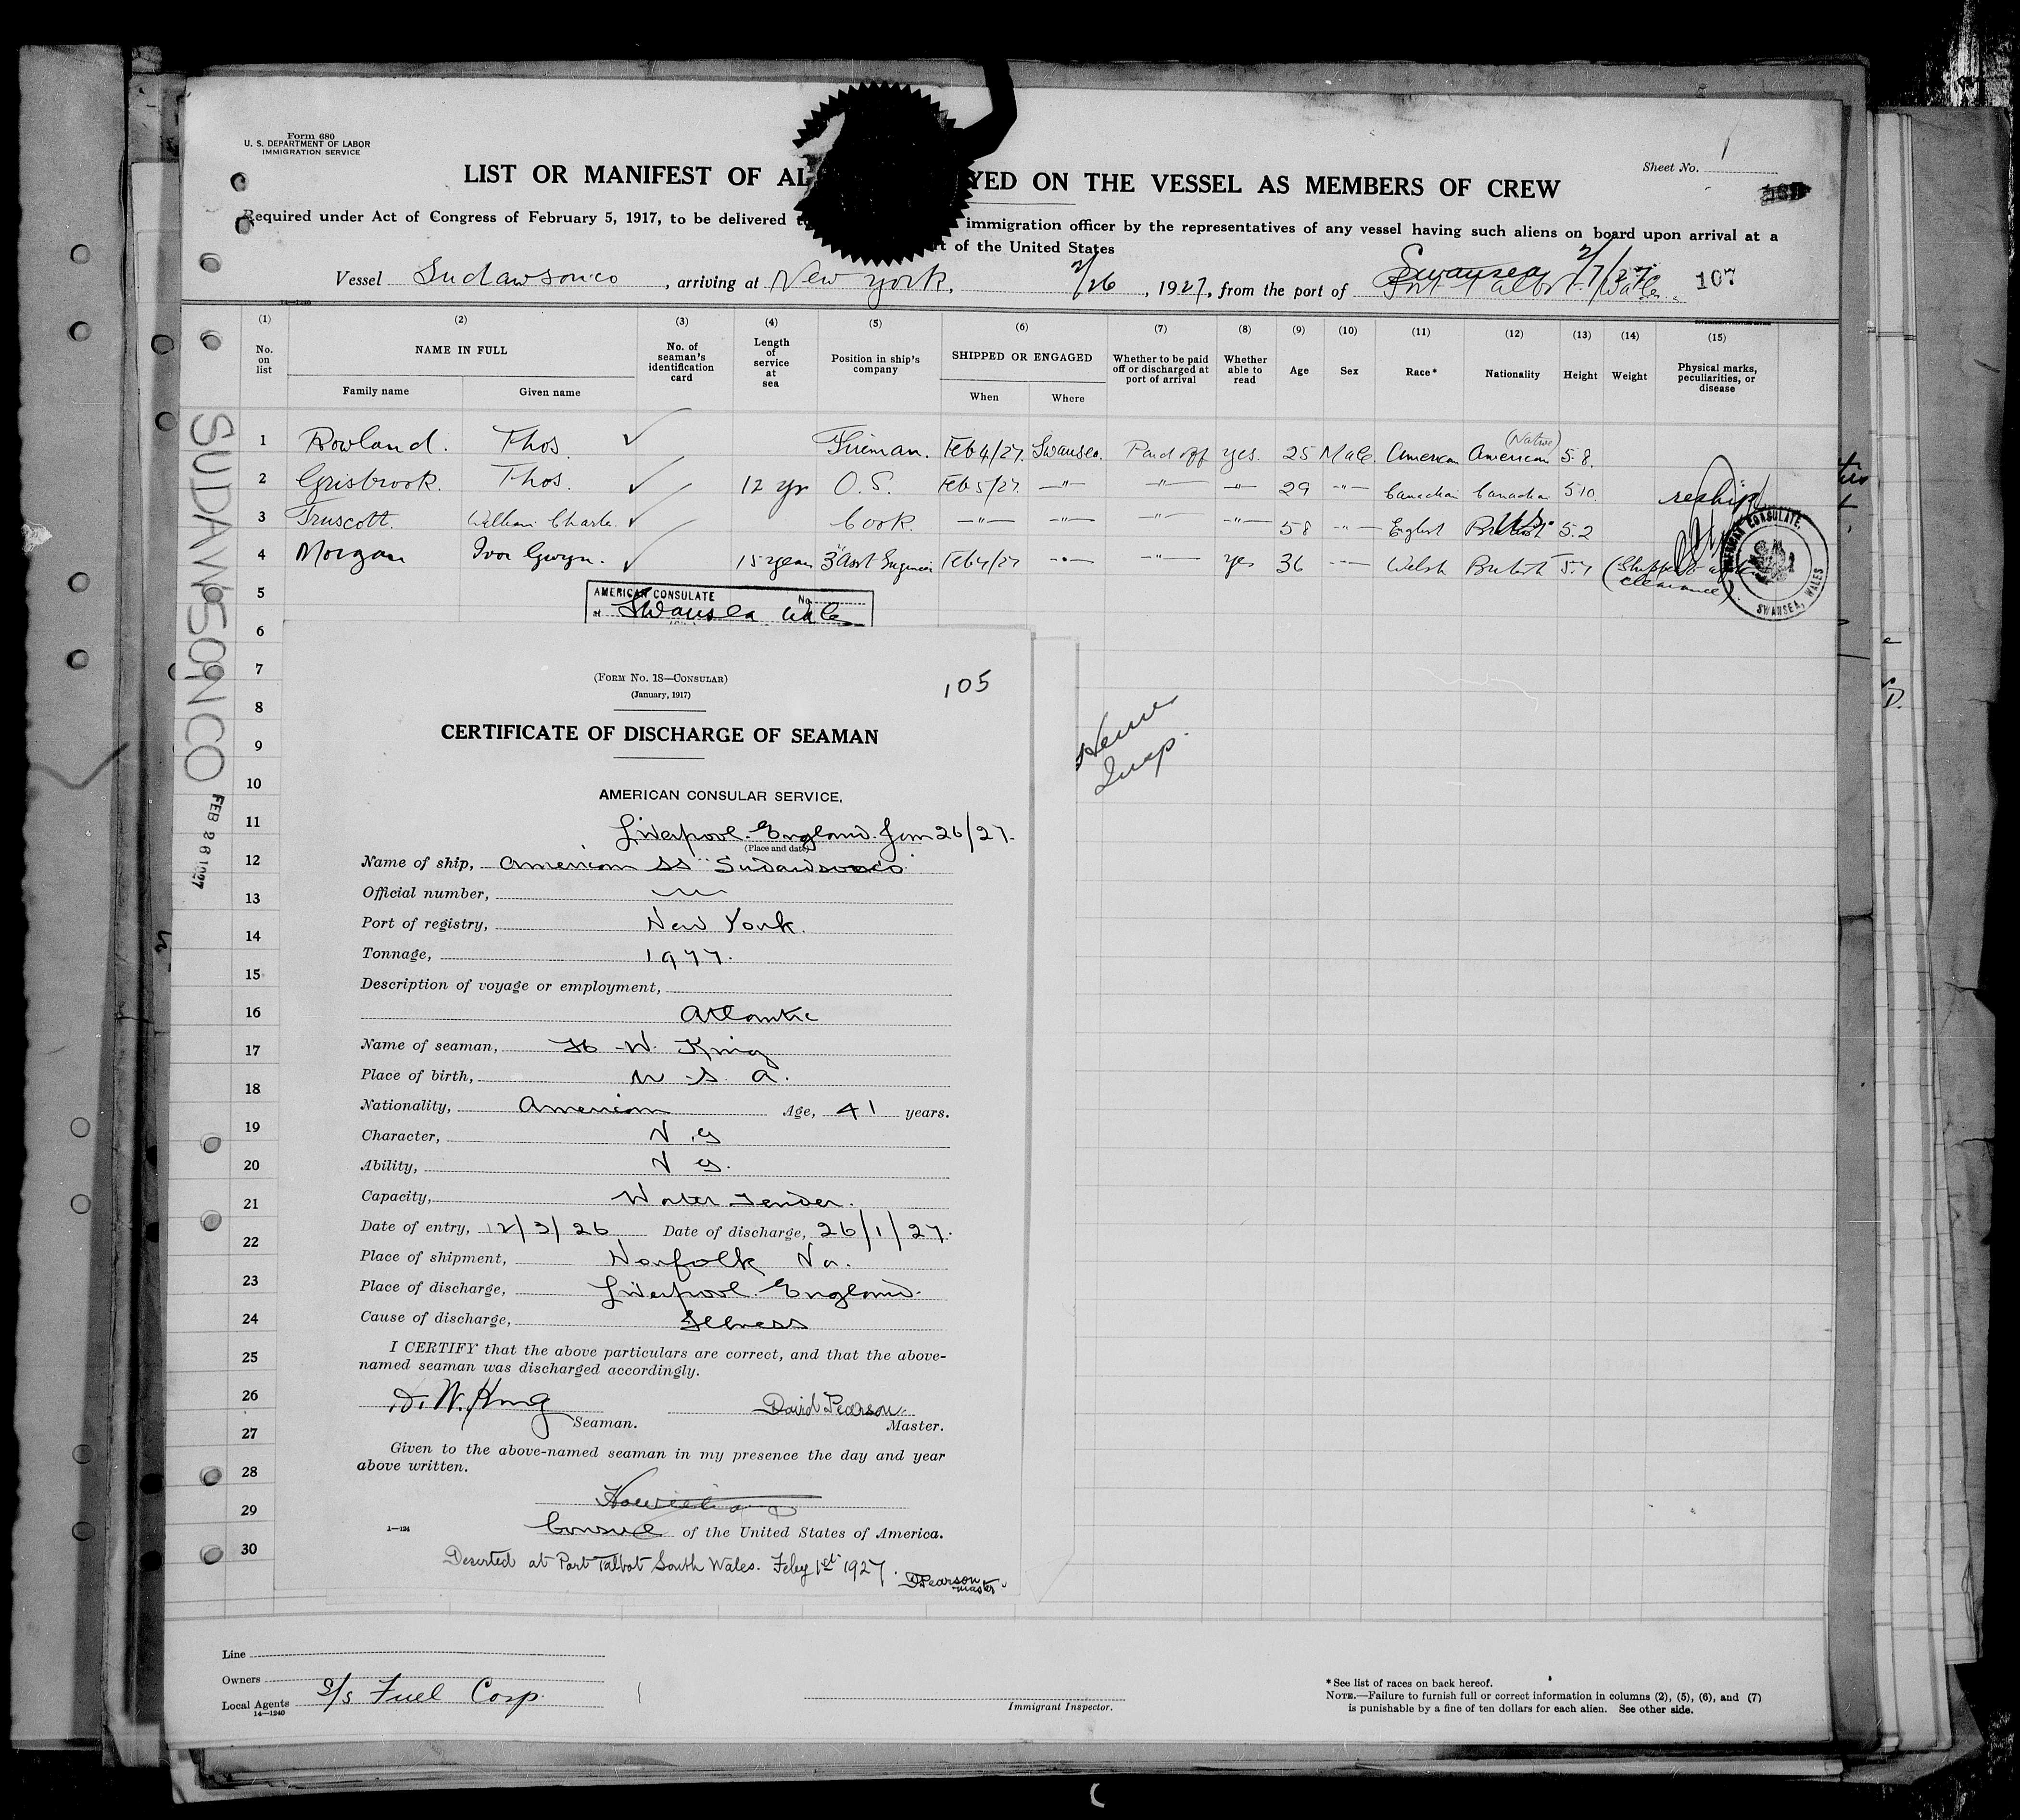 Form 680
U. S. DEPARTMENT OF LABOR
IMMIGRATION SERVICE
Sheet No. 1
LIST OR MANIFEST OF AL YED ON THE VESSEL AS MEMBERS OF CREW
Required under Act of Congress of February 5, 1917, to be delivered t immigration officer by the representatives of any vessel having such aliens on board upon arrival at a
t of the United States
Vessel Sudawsonco, arriving at New York, 2/26, 1927, from the port of Swansea 2/7/27 Port Talbot Wales 107
14—1240
(1) (2) (3) (4) (5) (6) (7) (8) (9) (10) (11) (12) (13) (14) (15)
No. on list NAME IN FULL No. of seaman's identification card Length of service at sea Position in ship's company SHIPPED OR ENGAGED Whether to be paid off or discharged at port of arrival Whether able to read Age Sex Race* Nationality Height Weight Physical marks, peculiarities, or disease
Family name Given name When Where
1 Rowland. Thos. ✓ Fireman. Feb 4/27. Swansea. Paid off yes. 25 Male. American American (Native) 5.8.
2 Grisbrook. Thos. ✓ 12 yr O.S. Feb 5/27. —"— —"— —"— 29 —"— Canadian Canadian 510. reship
3 Truscott. William Charles. ✓ Cook. —"— —"— —"— —"— 58 —"— English British U.S. 5.2
4 Morgan Ivor Gwyn. ✓ 15 years 3rd Asst Engineer Feb 4/27 —"— —"— yes 36 —"— Welsh British 5.7 (Shipped after clearance).
AMERICAN CONSULATE, SWANSEA, WALES
5
AMERICAN CONSULATE No.
at Swansea Wales
6
7
8
9
10
11
12
13
14
15
16
17
18
19
20
21
22
23
24
25
26
27
28
29
30
SUDAWSONCO
FEB 26 1927
(FORM No. 18—CONSULAR)
(January, 1917)
105
CERTIFICATE OF DISCHARGE OF SEAMAN
AMERICAN CONSULAR SERVICE,
Liverpool. England. Jan 26/27.
(Place and date)
Name of ship, American SS "Sudawsonco"
Official number,
Port of registry, New York.
Tonnage, 1977.
Description of voyage or employment,
Atlantic
Name of seaman, H W. King
Place of birth, U S. A.
Nationality, American Age, 41 years.
Character, V. G
Ability, V G.
Capacity, Water Tender.
Date of entry, 12/3/26 Date of discharge, 26/1/27.
Place of shipment, Norfolk Va.
Place of discharge, Liverpool. England.
Cause of discharge, Illness
I CERTIFY that the above particulars are correct, and that the above-
named seaman was discharged accordingly.
H. W. King David Pearson.
Seaman. Master.
Given to the above-named seaman in my presence the day and year
above written.
Consul of the United States of America.
1—124
Deserted at Port Talbot South Wales. Feby 1st 1927. D Pearson
master.
Insp.
Line
Owners
Local Agents S/S Fuel Corp.
14—1240
Immigrant Inspector.
* See list of races on back hereof.
NOTE.—Failure to furnish full or correct information in columns (2), (5), (6), and (7)
is punishable by a fine of ten dollars for each alien. See other side.